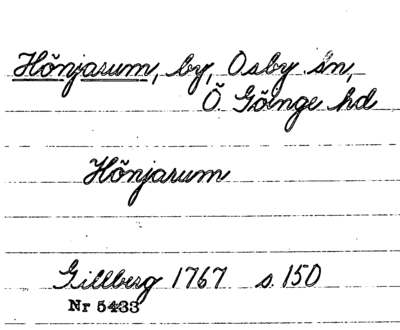 Hönjarum, by, Osby sn,
Ö. Göinge hd
Hönjarum
Gillberg 1767 s. 150
Nr 5433